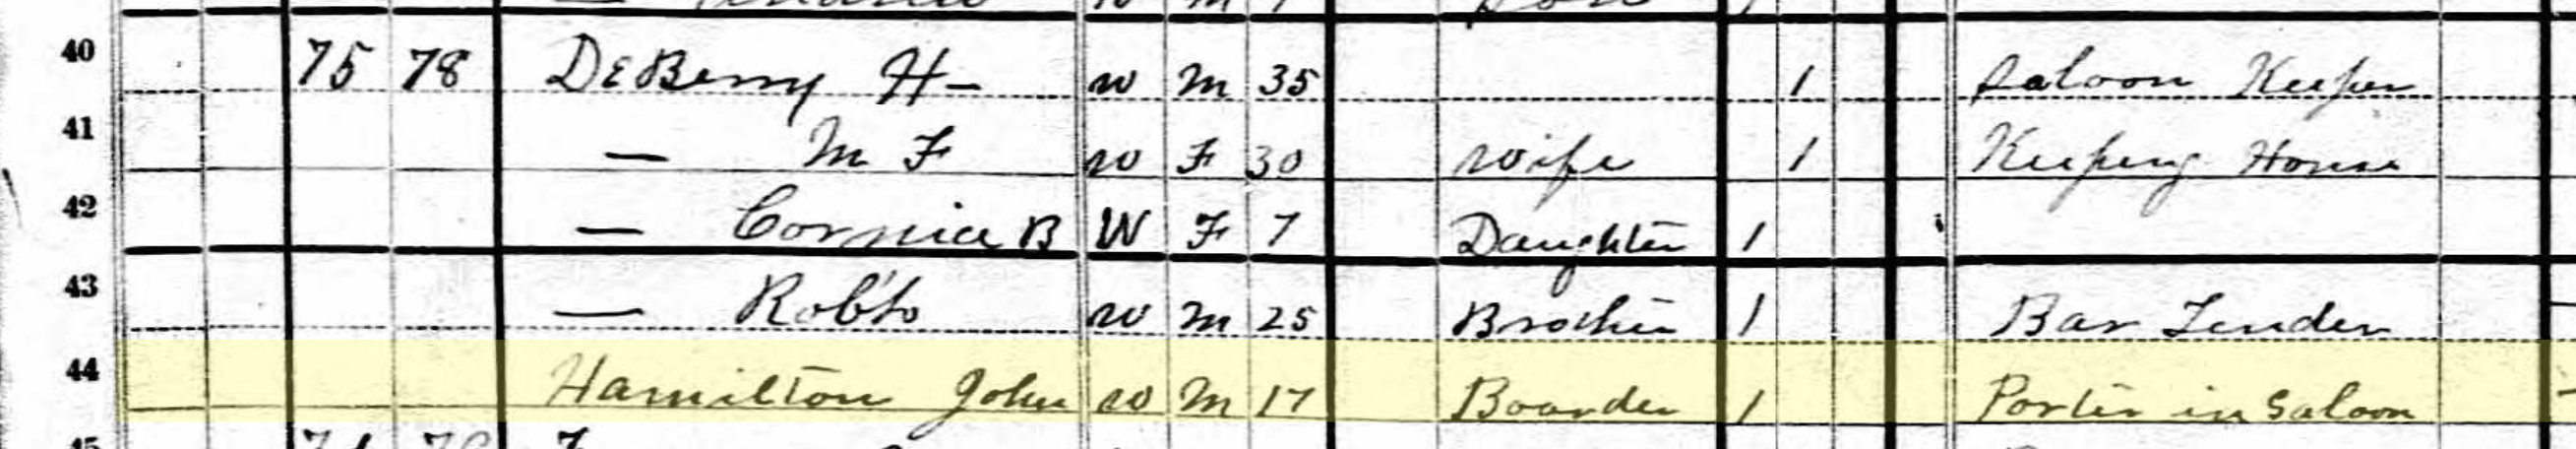 40 75 78 DeBerry H- W M 35 1 Saloon Keeper
41 — M F W F 30 Wife 1 Keeping House
42 — B W F 7 Daughter 1
43 — W M 25 Brother 1 Bar Tender
44 Hamilton John W M 17 Boarder 1 Porter in Saloon